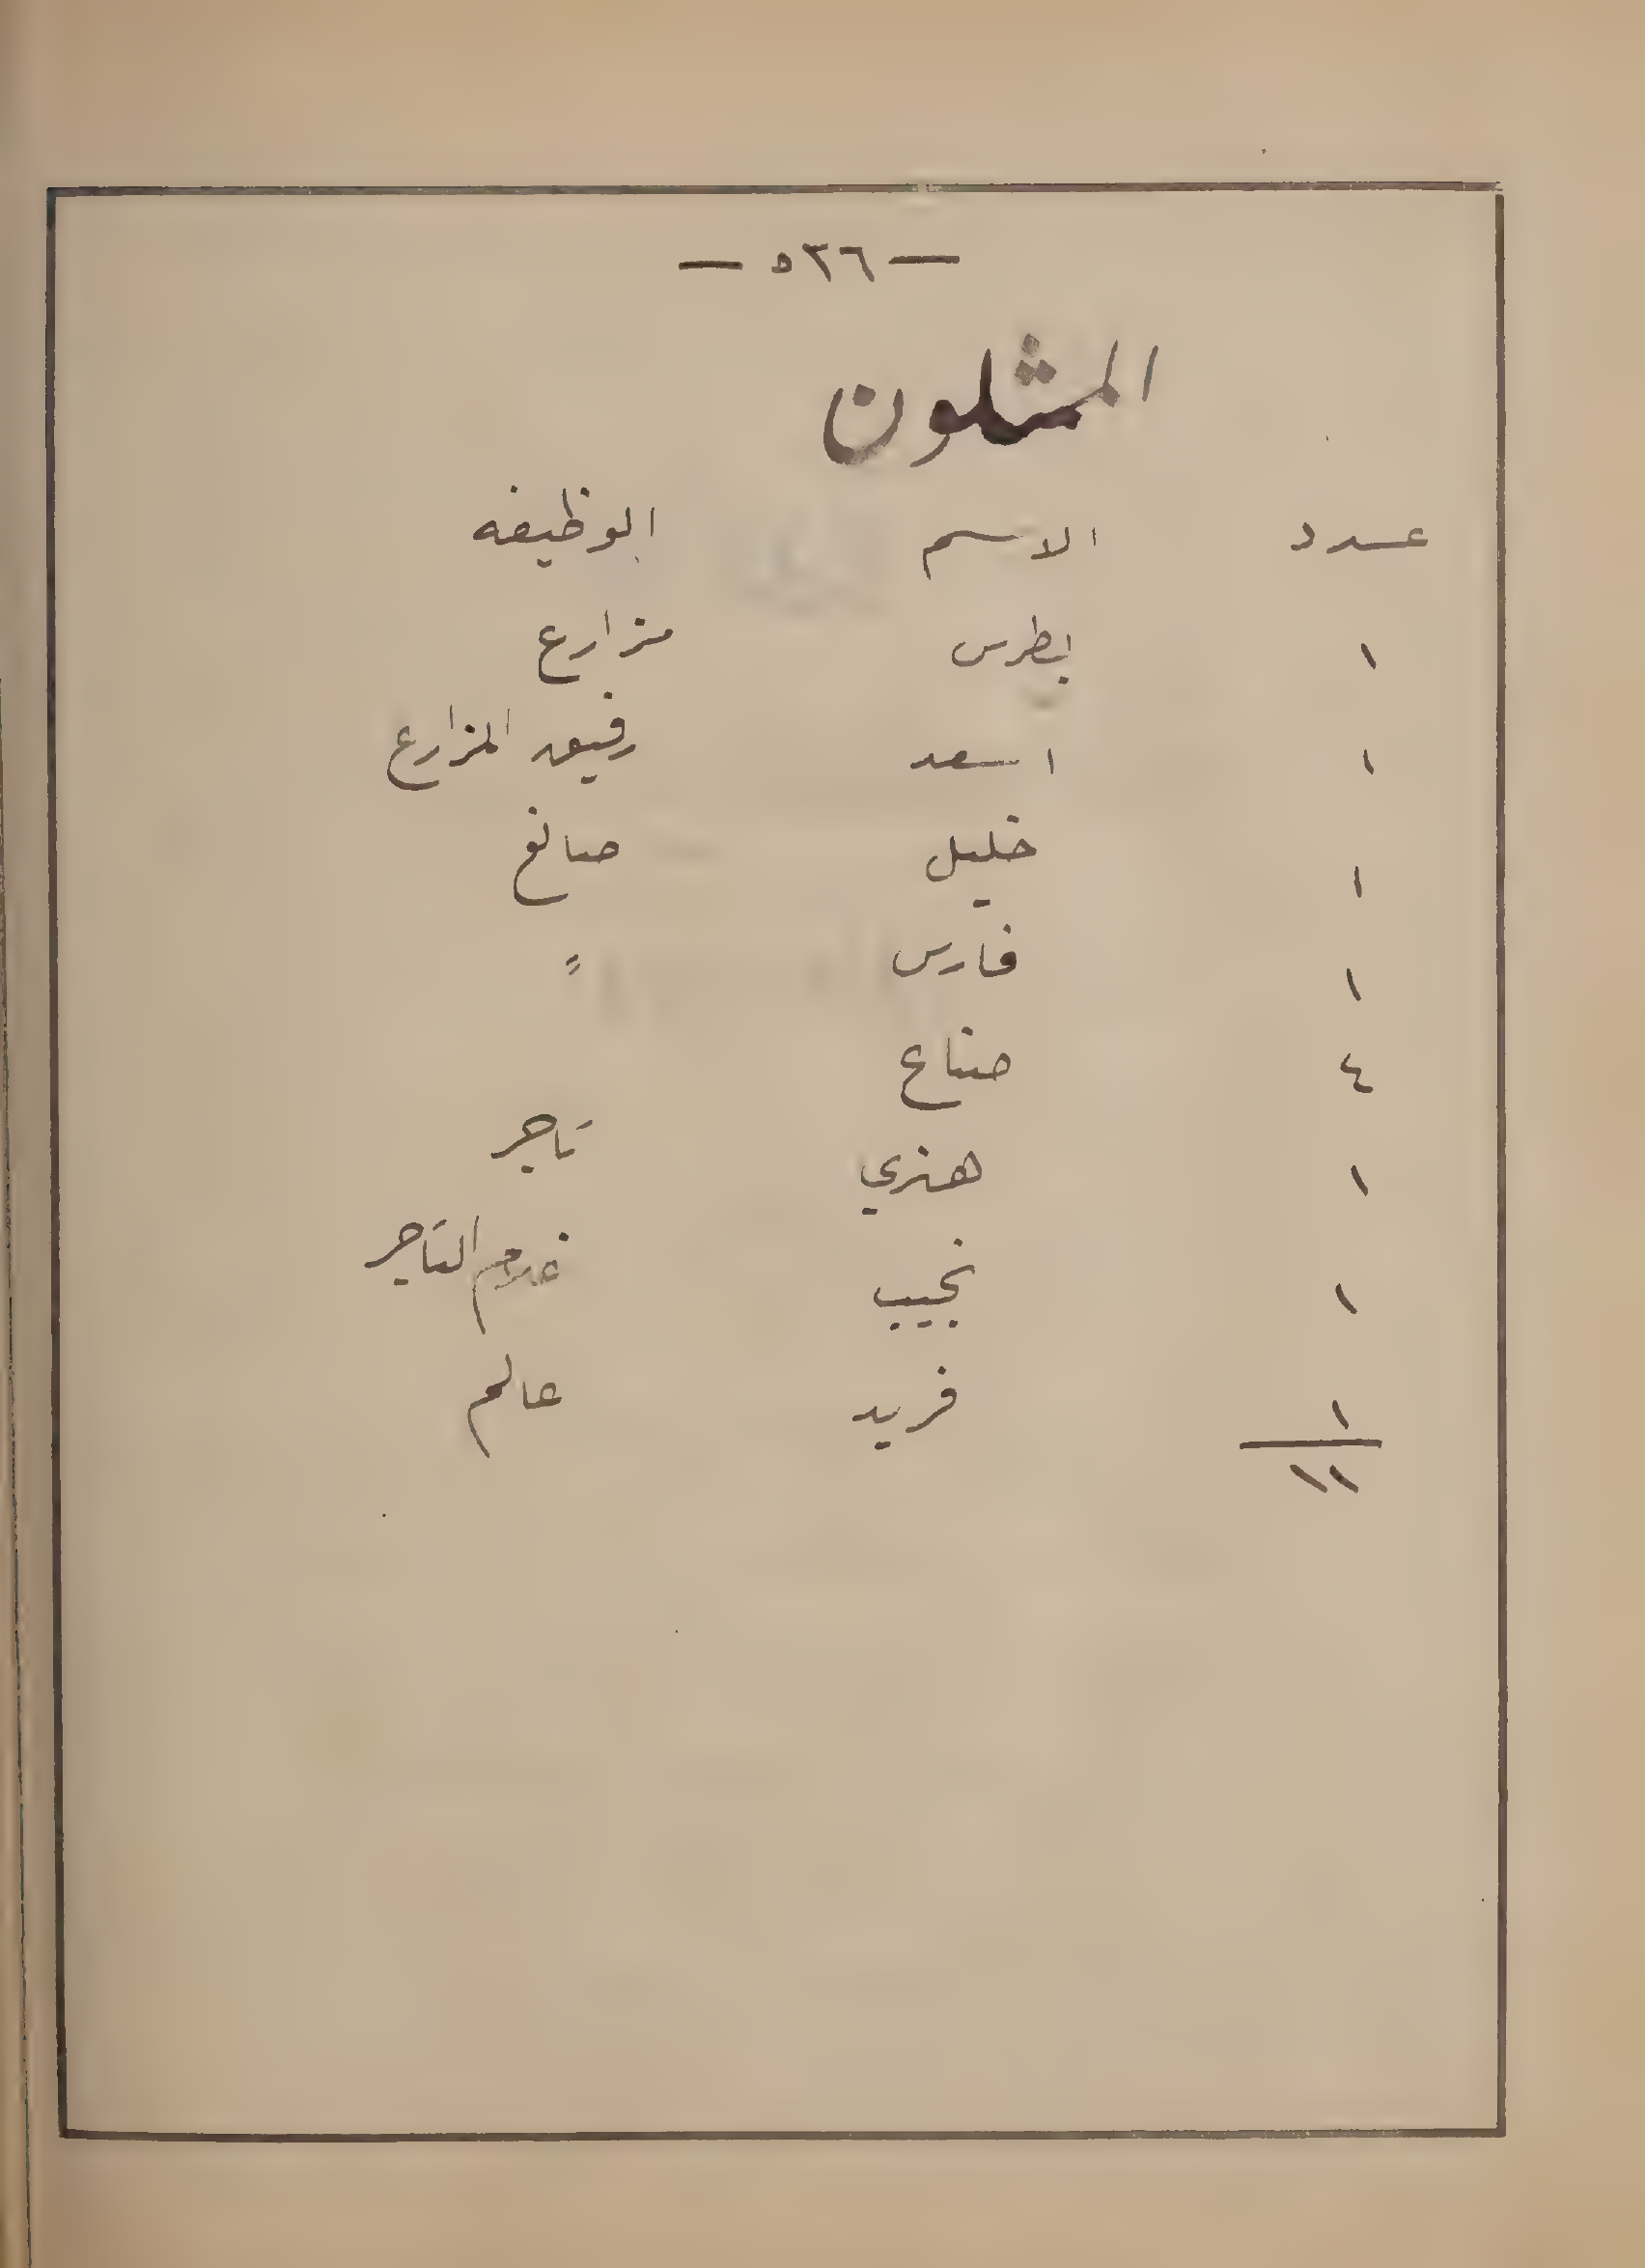 — ٥٣٦ —
الممثلون
عدد الاسم الوظيفه
١ بطرس مزارع
١ اسعد رفيق المزارع
١ خليل صانع
١ فارس "
٤ صناع
١ هنري تاجر
١ نجيب التاجر
١ فريد عالم
١١